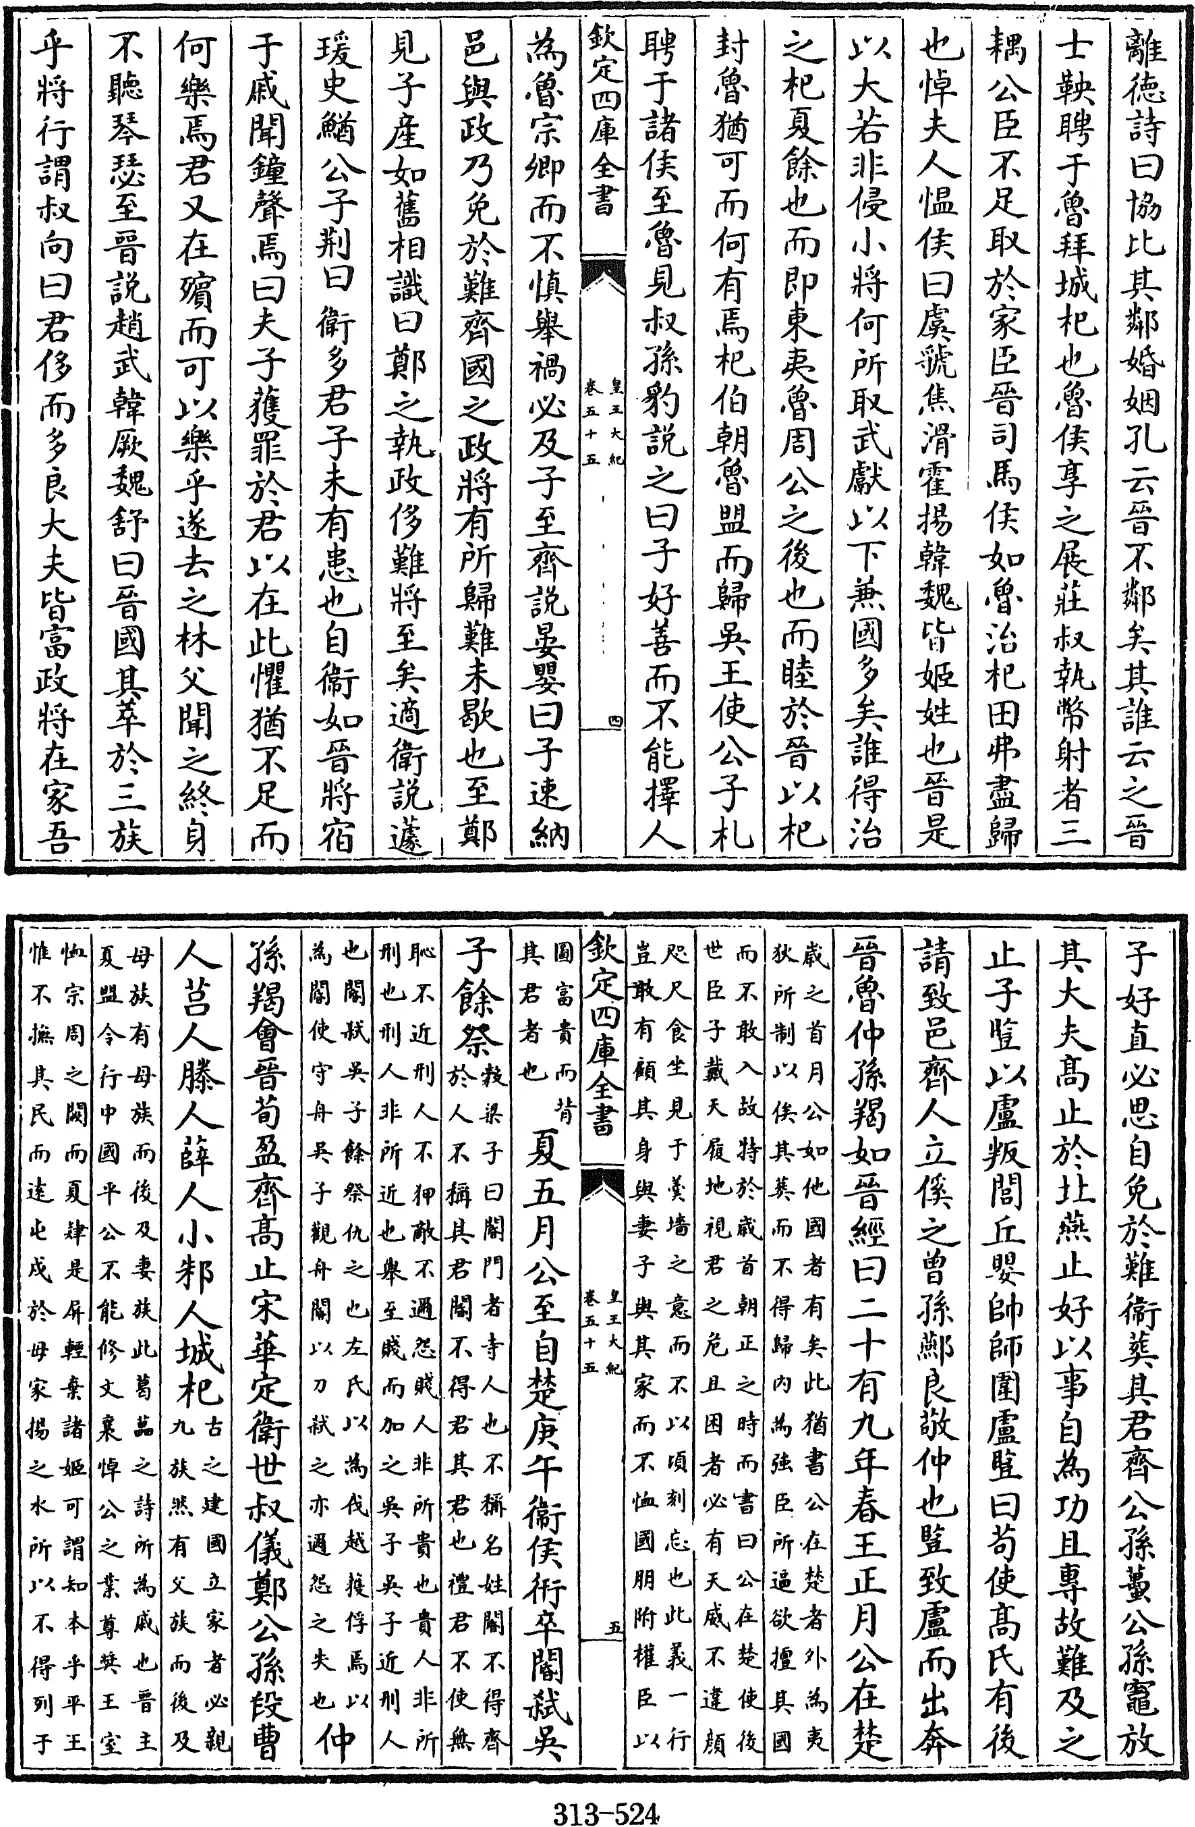 離徳詩曰協比其鄰婚姻孔云晉不鄰矣其誰云之晉
士鞅聘于魯拜城杞也魯侯享之展莊叔執幣射者三
耦公臣不足取於家臣晉司馬侯如魯治杞田弗盡歸
也悼夫人愠侯曰虞虢焦滑霍揚韓魏皆姬姓也晉是
以大若非侵小將何所取武獻以下兼國多矣誰得治
之杞夏餘也而即東夷魯周公之後也而睦於晉以杞
封魯猶可而何有焉杞伯朝魯盟而歸吳王使公子札
聘于諸侯至魯見叔孫豹說之曰子好善而不能擇人
欽定四庫全書
皇王大紀
卷五十五
四
為魯宗卿而不慎舉禍必及子至齊說晏嬰曰子速納
邑與政乃免於難齊國之政將有所歸難未歇也至鄭
見子産如舊相識曰鄭之執政侈難將至矣適衛說蘧
瑗史鰌公子荆曰衛多君子未有患也自衞如晉將宿
于戚聞鐘聲焉曰夫子獲罪於君以在此懼猶不足而
何樂焉君又在殯而可以樂乎遂去之林父聞之終身
不聽琴瑟至晉說趙武韓厥魏舒曰晉國其萃於三族
乎將行謂叔向曰君侈而多良大夫皆富政將在家吾
子好直必思自免於難衞葬其君齊公孫蠆公孫竈放
其大夫髙止於北燕止好以事自為功且專故難及之
止子豎以盧叛閭丘嬰帥師圍盧豎曰苟使髙氏有後
請致邑齊人立傒之曽孫酀良敬仲也豎致盧而出奔
晉魯仲孫羯如晉經曰二十有九年春王正月公在楚
歲之首月公如他國者有矣此猶書公在楚者外為夷
狄所制以俟其葬而不得歸内為強臣所逼欲擅其國
而不敢入故特於歲首朝正之時而書曰公在楚使後
世臣子戴天履地視君之危且困者必有天威不違顔
咫尺食坐見于羹墻之意而不以頃刻忘也此義一行
豈敢有顧其身與妻子與其家而不恤國朋附權臣以
欽定四庫全書
皇王大紀
卷五十五
五
圖富貴而背
其君者也
夏五月公至自楚庚午衞侯衎卒閽弑吳
子餘祭
穀梁子曰閽門者寺人也不稱名姓閽不得齊
於人不稱其君閽不得君其君也禮君不使無
恥不近刑人不狎敵不邇怨賤人非所貴也貴人非所
刑也刑人非所近也舉至賤而加之吳子吳子近刑人
也閽弑吳子餘祭仇之也左氏以為伐越獲俘焉以
為閽使守舟吳子觀舟閽以刀弑之亦邇怨之失也
仲
孫羯會晉荀盈齊髙止宋華定衛世叔儀鄭公孫段曹
人莒人滕人薛人小邾人城杞
古之建國立家者必親
九族然有父族而後及
母族有母族而後及妻族此葛藟之詩所為戚也晉主
夏盟令行中國平公不能修文襄悼公之業尊奬王室
恤宗周之闕而夏肄是屏輕棄諸姬可謂知本乎平王
惟不撫其民而逺屯戍於母家揚之水所以不得列于
313-524